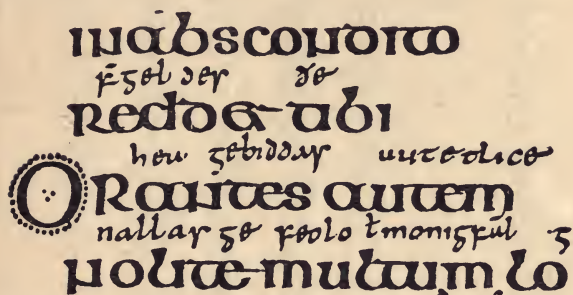 inabscondito
f̄gel des ðe
Reddet tibi
gebiddas uutedlice
ORantes autem
nallas ge feolo ł monigful g
nolite multum lo